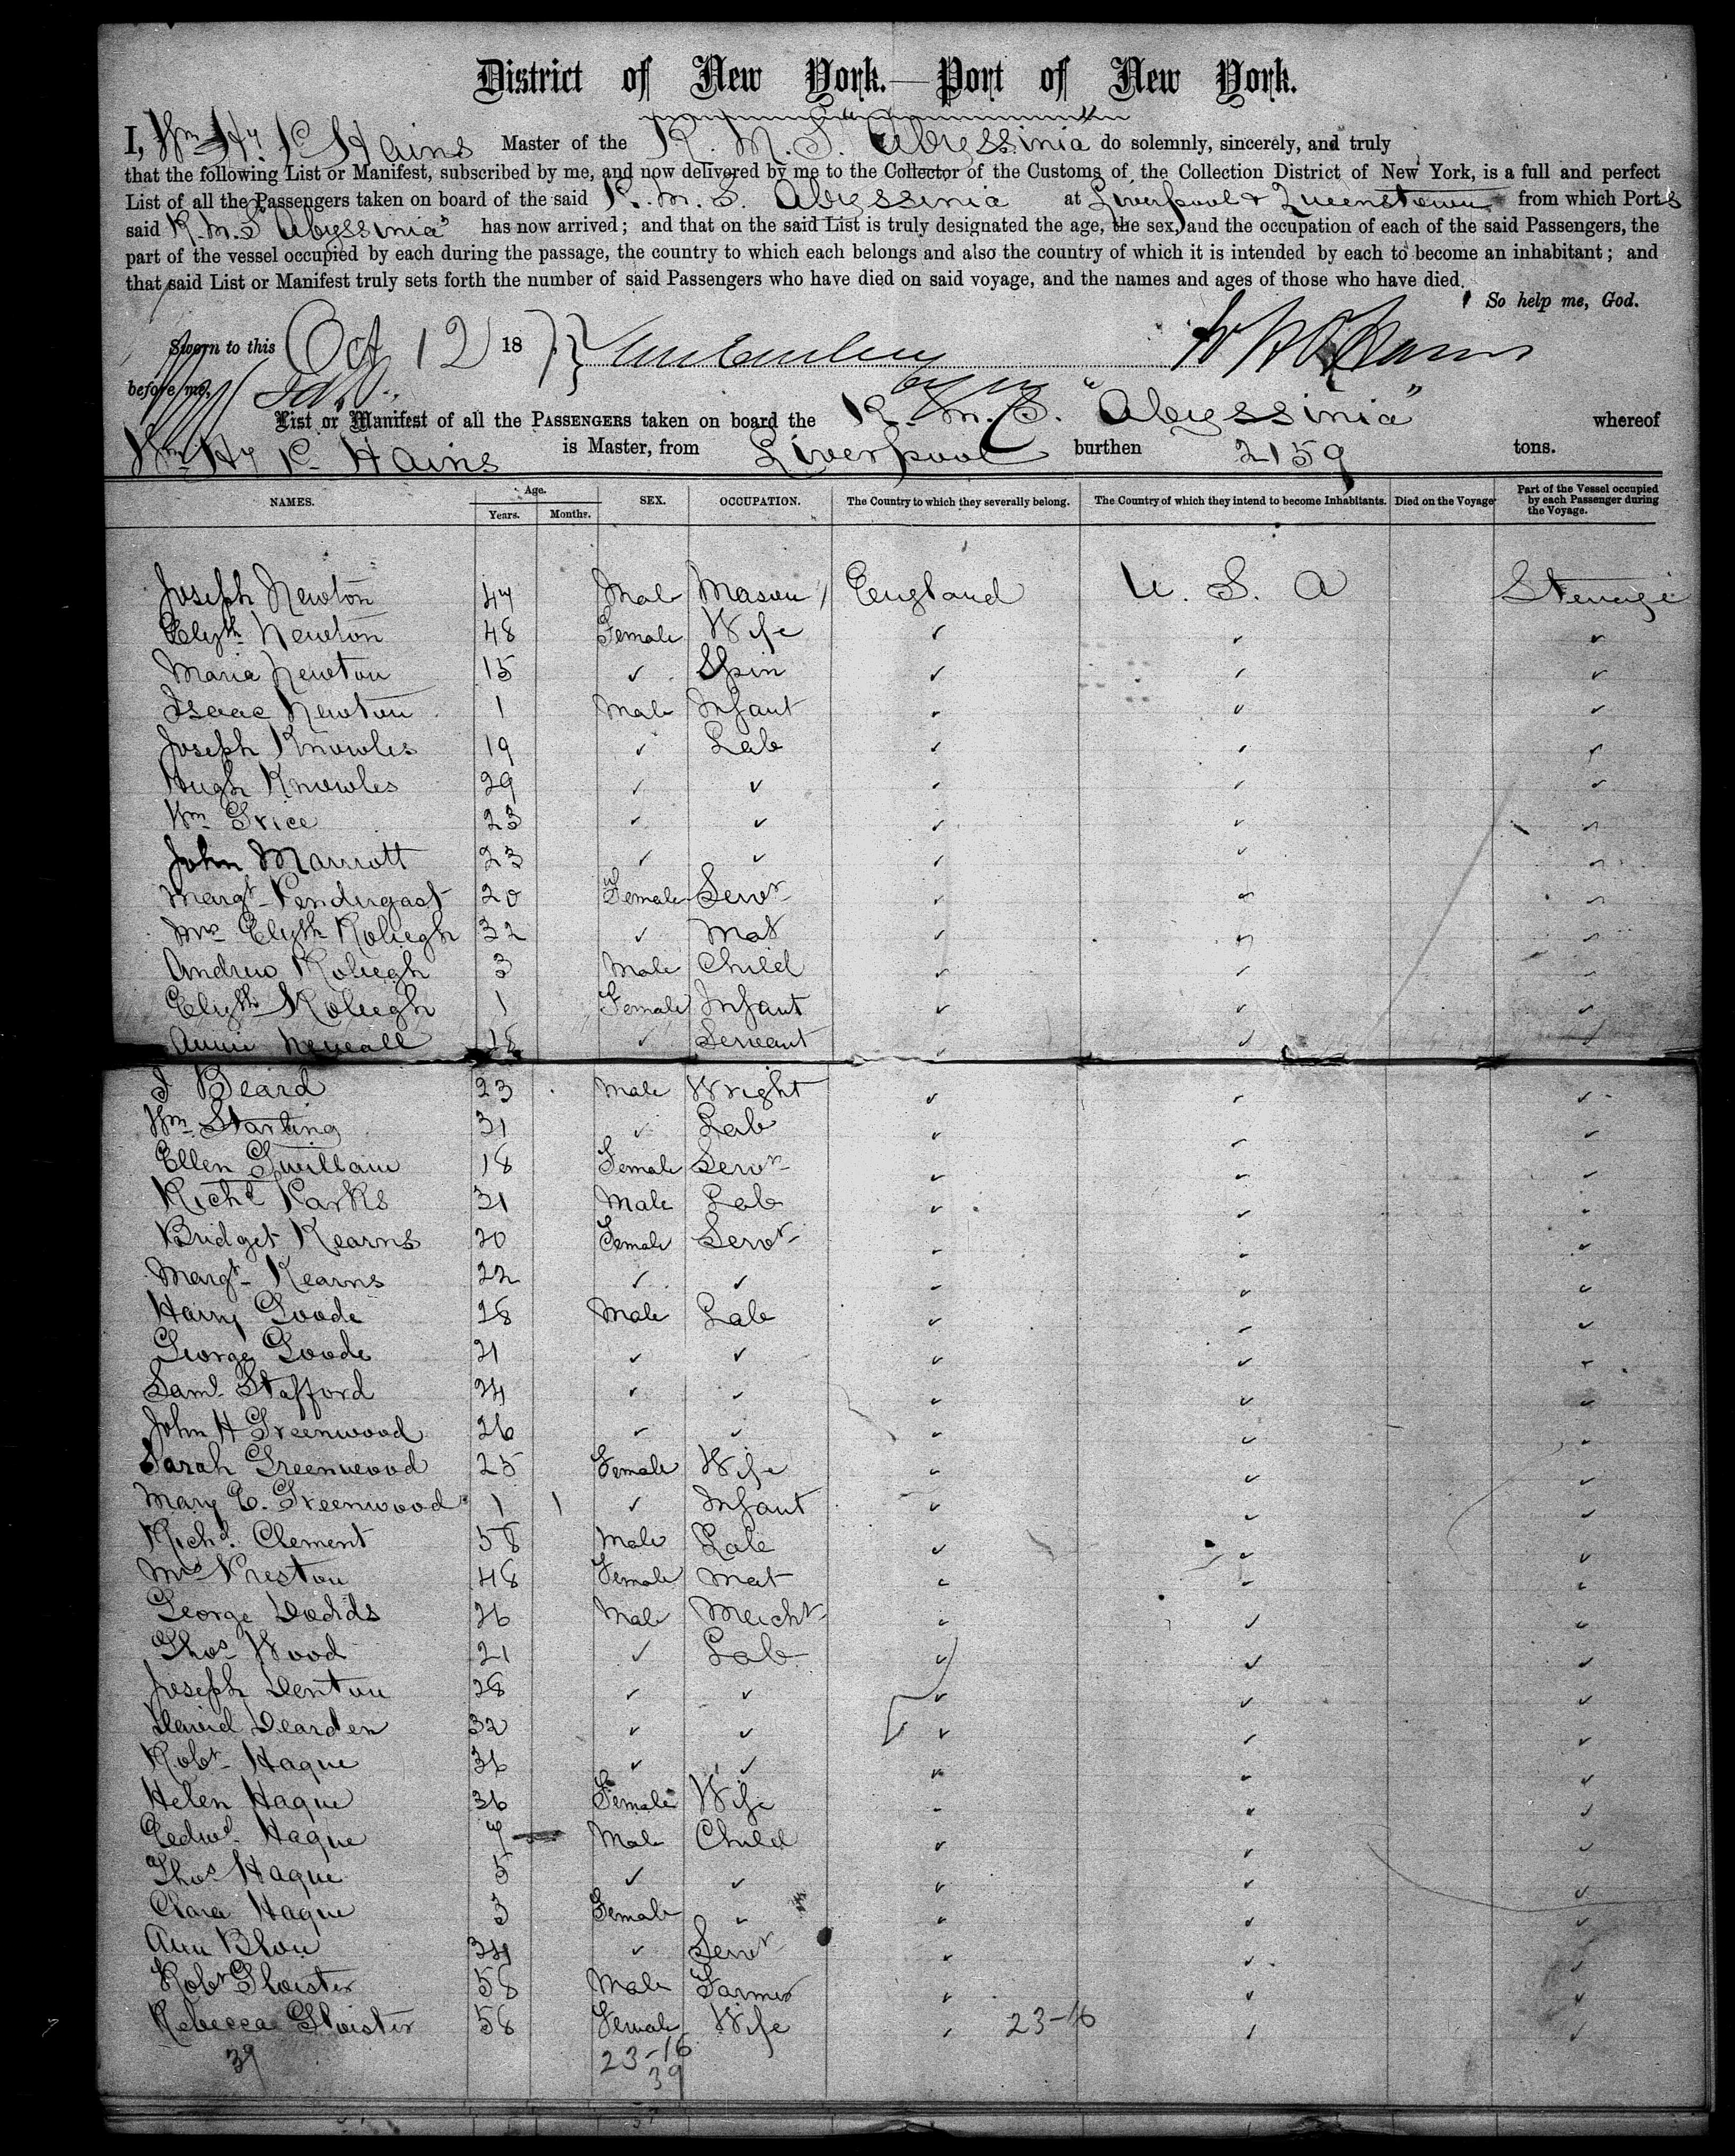 District of New York.—Port of New York.
I, Wm Hy. P. Hains Master of the R. M. S. "Abyssinia" do solemnly, sincerely, and truly
that the following List or Manifest, subscribed by me, and now delivered by me to the Collector of the Customs of the Collection District of New York, is a full and perfect
List of all the Passengers taken on board of the said R. M. S. Abyssinia at Liverpool & Queenstown from which Ports
said R. M. S "Abyssinia" has now arrived; and that on the said List is truly designated the age, the sex, and the occupation of each of the said Passengers, the
part of the vessel occupied by each during the passage, the country to which each belongs and also the country of which it is intended by each to become an inhabitant; and
that said List or Manifest truly sets forth the number of said Passengers who have died on said voyage, and the names and ages of those who have died.
So help me, God.
Sworn to this Oct 12 18 7
before me,
List or Manifest of all the PASSENGERS taken on board the R. M. S. "Abyssinia" whereof
Wm Hy P. Hains is Master, from Liverpool burthen 2159 tons.
NAMES. Age. Years. Months. SEX. OCCUPATION. The Country to which they severally belong. The Country of which they intend to become Inhabitants. Died on the Voyage Part of the Vessel occupied by each Passenger during the Voyage.
Joseph Newton 47 Male Mason England U. S. A Steerage
Elizth Newton 48 Female Wife ✓ ✓ ✓
Maria Newton 15 ✓ Spin ✓ ✓ ✓
Isaac Newton 1 Male Infant ✓ ✓ ✓
Joseph Knowles 19 ✓ Lab ✓ ✓ ✓
Hugh Knowles 29 ✓ ✓ ✓ ✓ ✓
Wm Grice 23 ✓ ✓ ✓ ✓ ✓
John Marriott 23 ✓ ✓ ✓ ✓ ✓
Margt Pendergast 20 Female Servt ✓ ✓ ✓
Mrs Elizth Roliegh 32 ✓ Mat ✓ ✓ ✓
Andrew Roliegh 3 Male Child ✓ ✓ ✓
Elizth Roliegh 1 Female Infant ✓ ✓ ✓
Annie 18 ✓ Servant ✓ ✓ ✓
J Beard 23 Male Wright ✓ ✓ ✓
Wm Starling 31 ✓ Lab ✓ ✓ ✓
Ellen Gwillam 18 Female Servt ✓ ✓ ✓
Richd Parks 31 Male Lab ✓ ✓ ✓
Bridget Kearns 20 Female Servt ✓ ✓ ✓
Margt Kearns 22 ✓ ✓ ✓ ✓ ✓
Harry Goode 28 Male Lab ✓ ✓ ✓
George Goode 21 ✓ ✓ ✓ ✓ ✓
Saml Stafford 24 ✓ ✓ ✓ ✓ ✓
John H Greenwood 26 ✓ ✓ ✓ ✓ ✓
Sarah Greenwood 25 Female Wife ✓ ✓ ✓
Mary E. Greenwood 1 1 ✓ Infant ✓ ✓ ✓
Richd. Clement 58 Male Lab ✓ ✓ ✓
Mrs Preston 48 Female Mat ✓ ✓ ✓
George Dodds 26 Male Mercht ✓ ✓ ✓
Thos Wood 21 ✓ Lab ✓ ✓ ✓
Joseph Denton 28 ✓ ✓ ✓ ✓ ✓
David Dearden 32 ✓ ✓ ✓ ✓ ✓
Robt Hague 36 ✓ ✓ ✓ ✓ ✓
Helen Hague 36 Female Wife ✓ ✓ ✓
Edwd. Hague 7 Male Child ✓ ✓ ✓
Thos Hague 5 ✓ ✓ ✓ ✓ ✓
Clara Hague 3 Female ✓ ✓ ✓ ✓
Ann Blou 34 ✓ Servt ✓ ✓ ✓
Robt Gloister 58 Male Farmer ✓ ✓ ✓
Rebecca Gloister 58 Female Wife ✓ 23-16 ✓ ✓
39 23-16
39